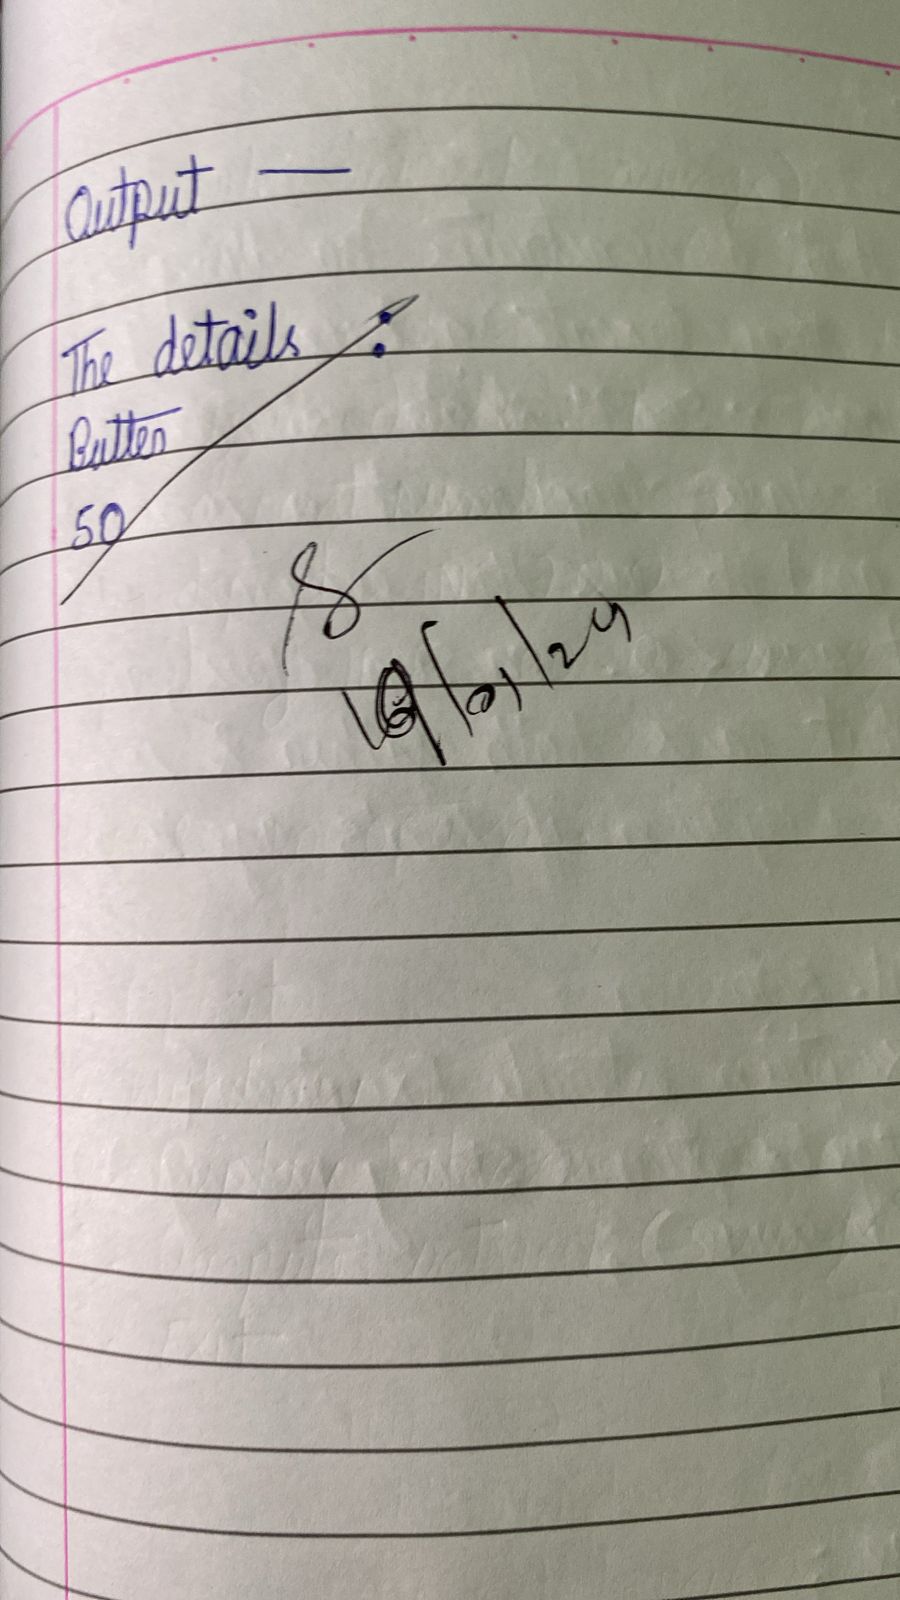 Output —
The details :
Butter
50